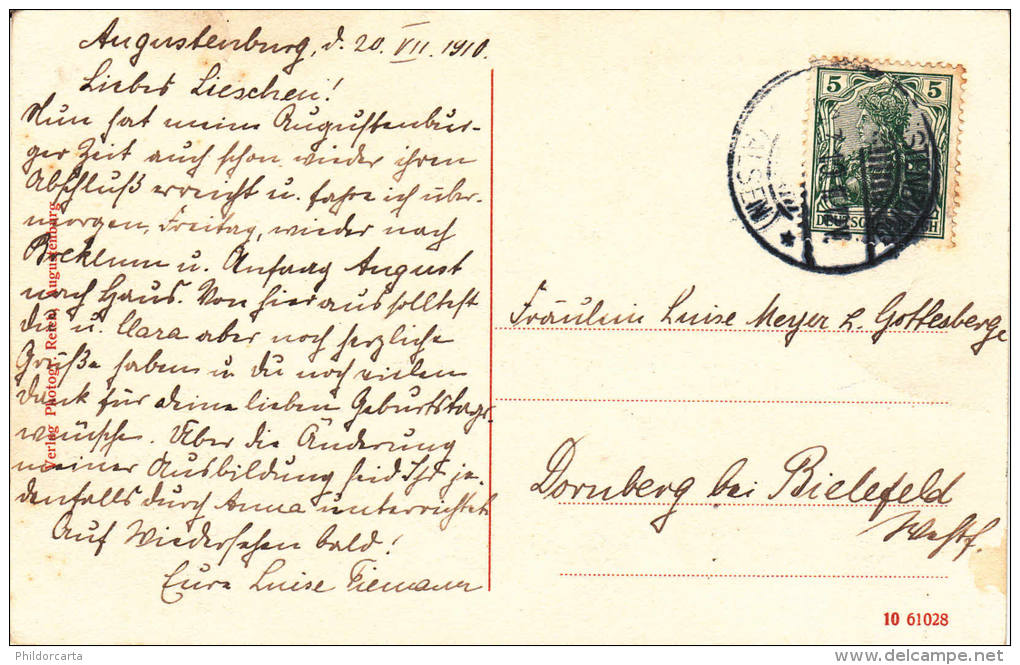 Augustenburg, d. 20. VII. 1910.
Liebes Lieschen!
Nun hat meine Augustenbur-
ger Zeit auch schon wieder ihren
Abschluß erreicht u. fahre ich über-
morgen, Freitag, wieder nach
Breklum u. Anfang August
nach Haus. Von hier aus solltest
du u. Clara aber noch herzliche
Grüße haben u. du noch vielen
Dank für deine lieben Geburtstags-
wünsche. Über die Änderung
meiner Ausbildung seid Ihr je-
denfalls durch Anna unterrichtet.
Auf Wiedersehen bald!
Eure Luise Tiemann
Verlag Photogr. Reien, Augustenburg
5 5
(ALSEN)
Fräulein Luise Meyer z. Gottesberge
Dornberg bei Bielefeld
Westf.
10 61028
Phildorcarta
www.delcampe.net